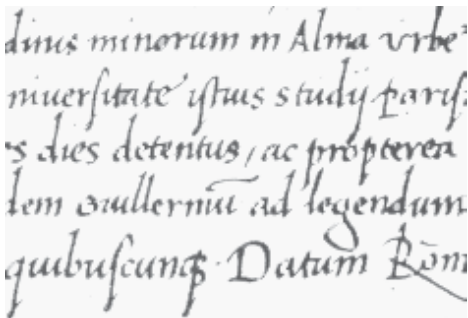 dinis minorum in Alma vrbe
niuerſitate iſtius studij pariſ
s dies detentus, ac propterea
dem Guillermū ad legendum
quibuſcunqꝫ. Datum Rōm